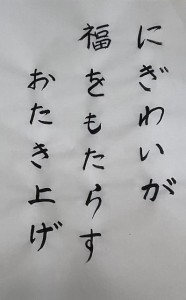 にぎわいが
福をもたらす
おたき上げ